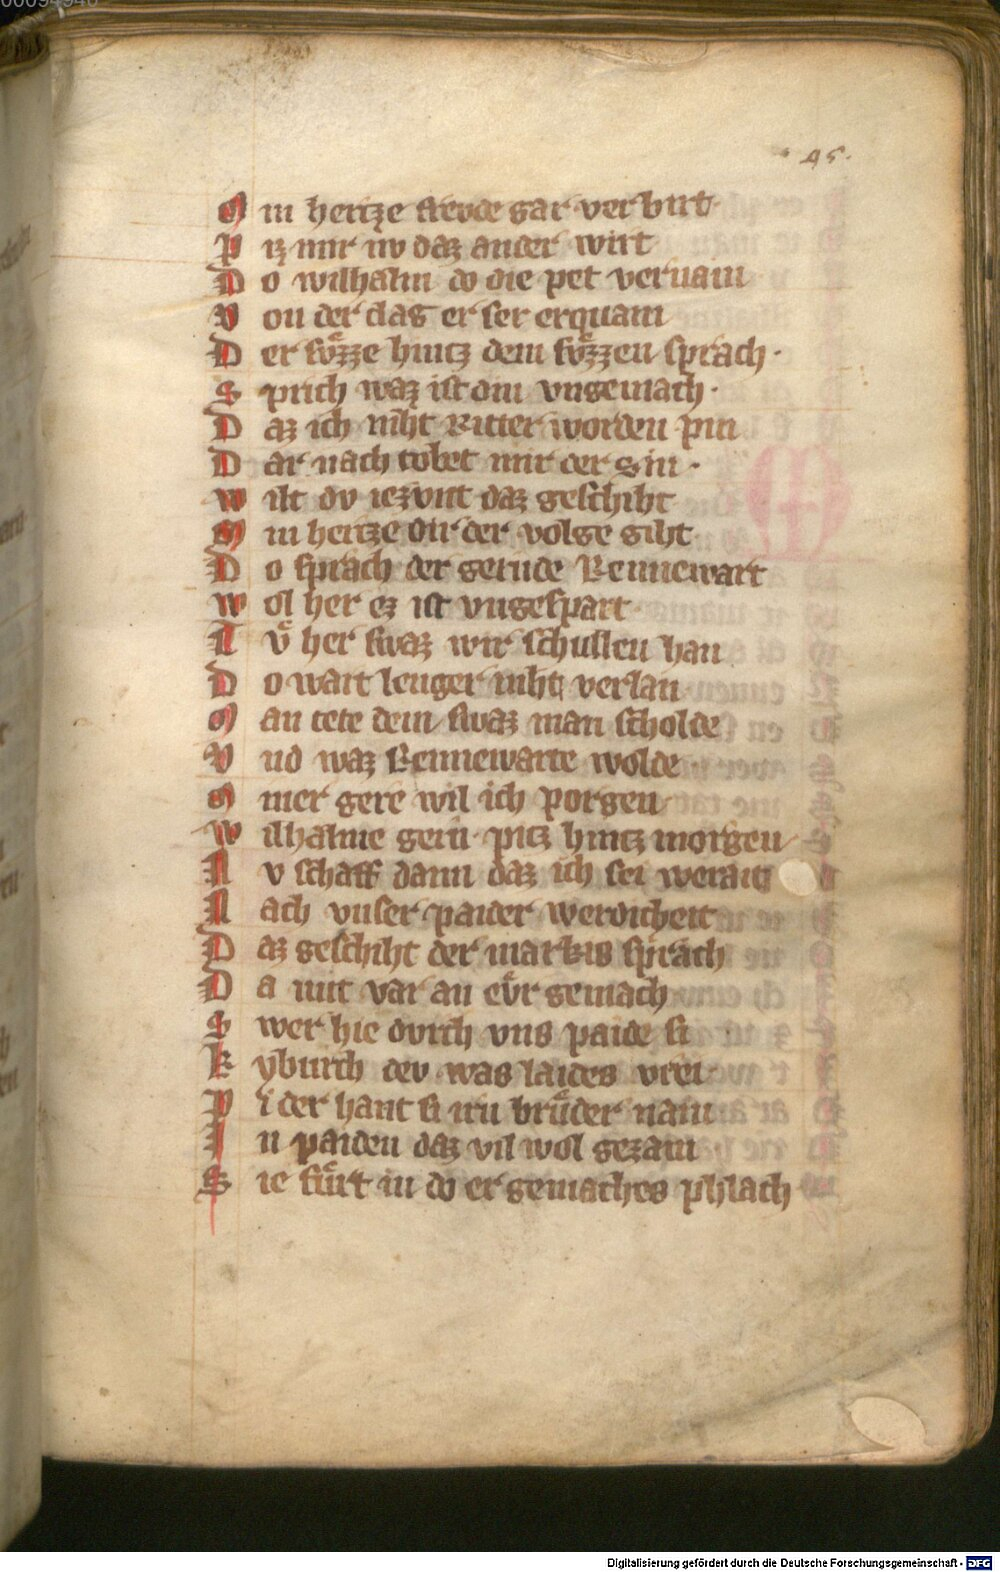 00094946
45.
M in hertze frevde gar verbirt·
P iz mir nv daz ander wirt
D o wilhalm do die pet vernam
V on der clag er ser erquam
D er sv̊zze hintz dem sv̊zzen sprach·
S prich waz ist din vngemach·
D az ich niht Ritter worden pin
D ar nach tobet mir der sin·
W ilt dv iezvnt daz geschiht
M in hertze dir der volge giht·
D o sprach der gerude Rennewart
W ol her ez ist vngespart·
N v̊ her swaz wir schullen han
D o wart lenger niht verlan
M an tete dem swaz man scholde
V nd waz Rennewarte wolde·
M mer gere wil ich porgen
W ilhalme gern pitz hintz morgen
N v schaff dann daz ich sei werait
N ach vnser paider werdicheit
D az geschiht der markis sprach
D a mit var an ev̊r gemach
S wer hie dvrch vns paide si
K yburch dev was laides vrei·
P i der hant si irn brůder nam
I n paiden daz vil wol gezam
S ie fůrt in do er gemaches phlach
Digitalisierung gefördert durch die Deutsche Forschungsgemeinschaft - DFG